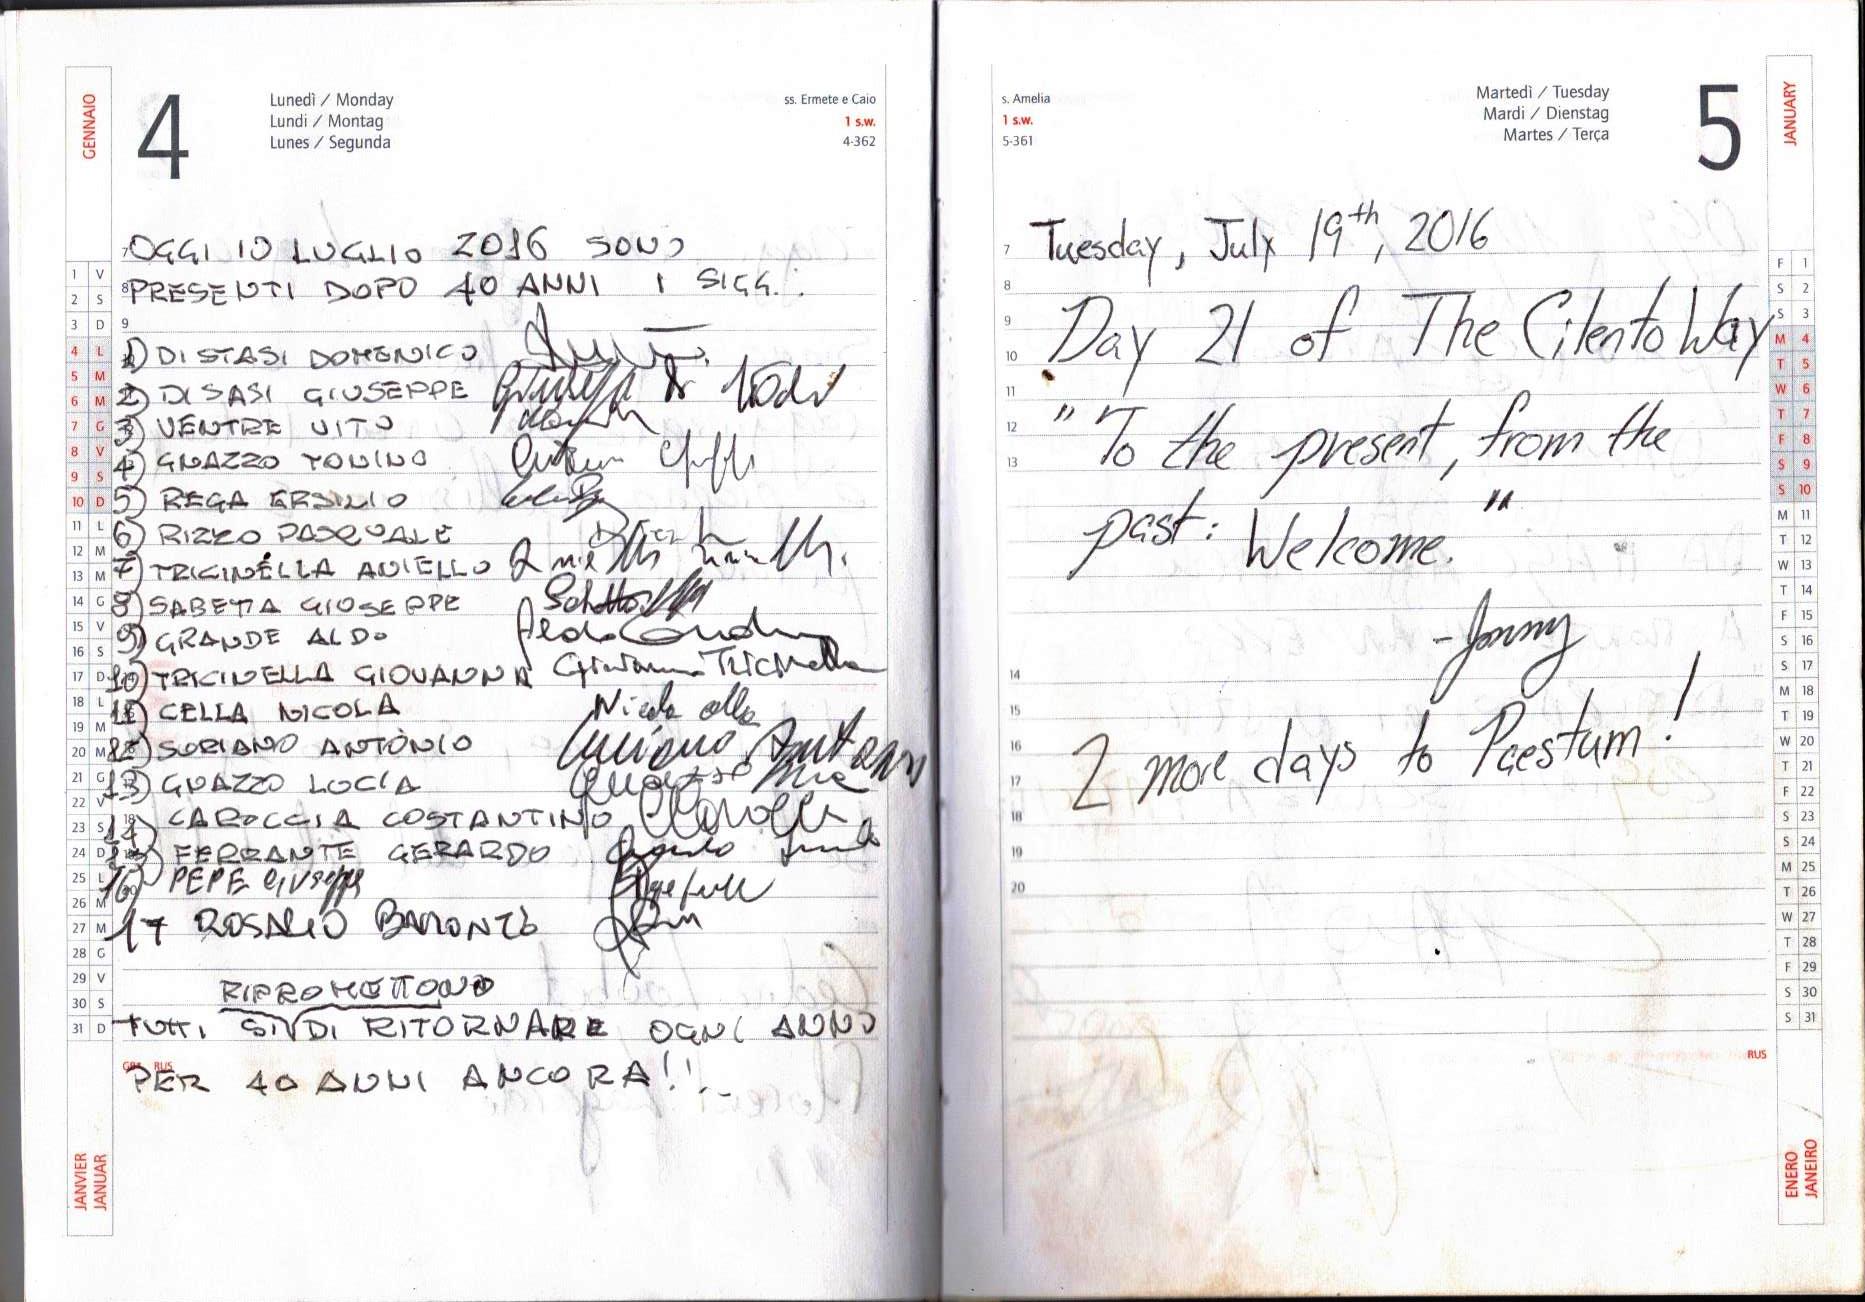 GENNAIO
4
Lunedì / Monday
Lundi / Montag
Lunes / Segunda
ss. Ermete e Caio
1 s.w.
4-362
OGGI 10 LUGLIO 2016 SONO
PRESENTI DOPO 40 ANNI I SIGG.:
1) DI STASI DOMENICO
2) DI SASI GIUSEPPE
3) VENTRE VITO
4) GNAZZO TONINO
5) REGA ERSILIO
6) RIZZO PASQUALE
7) TRICINELLA ANIELLO
8) SABETTA GIOSEPPE
9) GRANDE ALDO Aldo Grande
10) TRICINELLA GIOVANNA Giovanna Tricinella
11) CELLA NICOLA Nicola Cella
12) SORIANO ANTONIO
13) GNAZZO LUCIA
14) CAROCCIA COSTANTINO
15) FERRANTE GERARDO
16) PEPE GIUSEPPE
17 ROSARIO BARONTE
RIPROMETTONO
TUTTI SI DI RITORNARE OGNI ANNO
PER 40 ANNI ANCORA!!
GR1 RUS
JANVIER
JANUAR
1 V
2 S
3 D
4 L
5 M
6 M
7 G
8 V
9 S
10 D
11 L
12 M
13 M
14 G
15 V
16 S
17 D
18 L
19 M
20 M
21 G
22 V
23 S
24 D
25 L
26 M
27 M
28 G
29 V
30 S
31 D
s. Amelia
1 s.w.
5-361
Martedì / Tuesday
Mardi / Dienstag
Martes / Terça
5
JANUARY
Tuesday, July 19th, 2016
Day 21 of The Cilento Way
"To the present, from the
past: Welcome."
-Jonny
2 more days to Paestum!
7
8
9
10
11
12
13
14
15
16
17
18
19
20
F 1
S 2
S 3
M 4
T 5
W 6
T 7
F 8
S 9
S 10
M 11
T 12
W 13
T 14
F 15
S 16
S 17
M 18
T 19
W 20
T 21
F 22
S 23
S 24
M 25
T 26
W 27
T 28
F 29
S 30
S 31
RUS
ENERO
JANEIRO